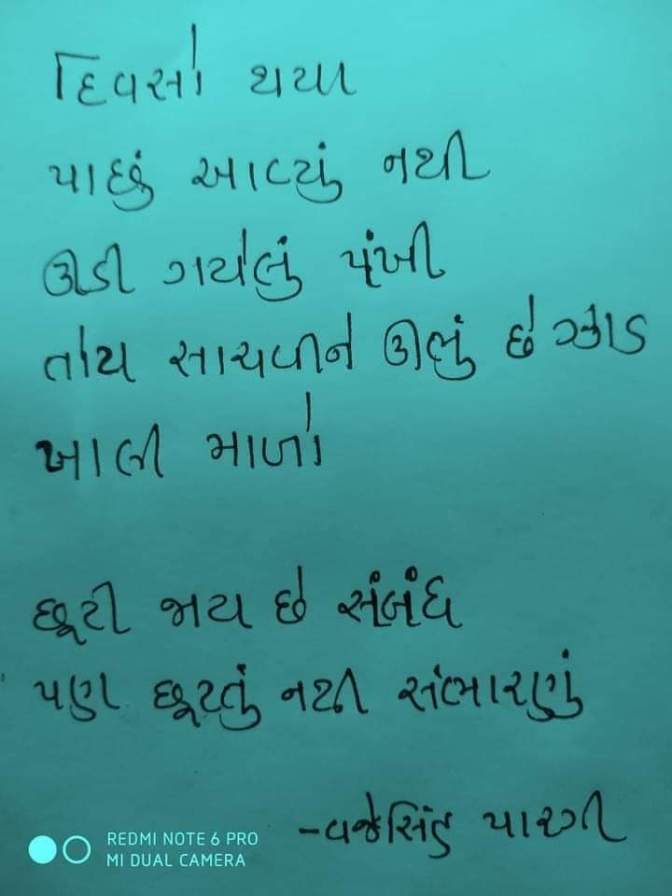 દિવસો થયા
પાછું આવ્યું નથી
ઊડી ગયેલું પંખી
તોય સાચવીને ઊભું છે ઝાડ
ખાલી માળો
છૂટી જાય છે સંબંધ
પણ છૂટતું નથી સંભારણું
-વજેસિંહ પારગી
REDMI NOTE 6 PRO
MI DUAL CAMERA